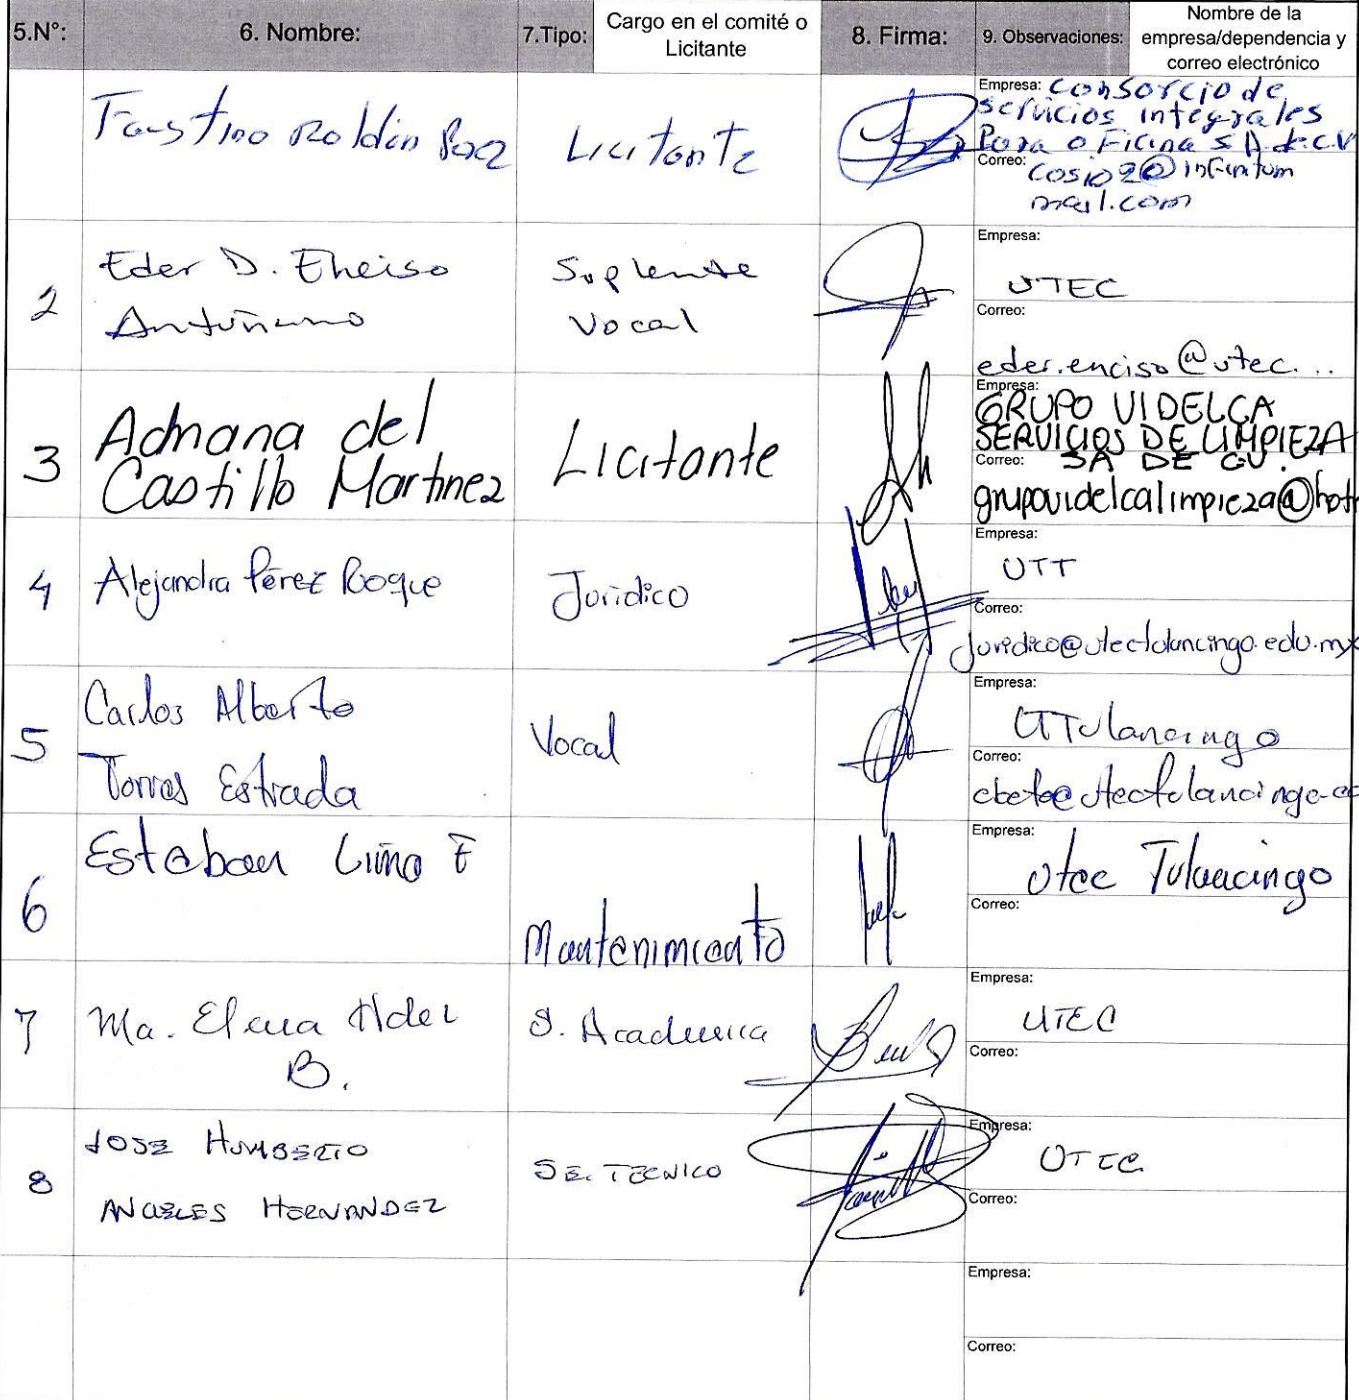 5.N°: 6. Nombre: 7.Tipo: Cargo en el comité o Licitante 8. Firma: 9. Observaciones: Nombre de la empresa/dependencia y correo electrónico
Faustino Roldán Paz Licitante
Empresa: Consorcio de
Servicios integrales
Para oficina S.A de C.V
Correo: cosio20@infinitum
mail.com
2 Eder D. Enciso
Antuñano
Suplente
Vocal
Empresa:
UTEC
Correo:
eder.enciso@utec...
3 Adriana del
Castillo Martinez
Licitante
Empresa:
GRUPO VIDELCA
SERVICIOS DE LIMPIEZA
Correo: SA DE CV.
grupovidelcalimpieza@hot
4 Alejandra Pérez Roque Jurídico
Empresa:
UTT
Correo:
juridico@utectulancingo.edu.mx
5 Carlos Alberto
Torres Estrada
Vocal
Empresa:
UTTulancingo
Correo:
6 Esteban
Mantenimiento
Empresa:
Utec Tulancingo
Correo:
7 Ma. Elena
B.
S. Academica
Empresa:
UTEC
Correo:
8 JOSE HUMBERTO
ANGELES HERNANDEZ
SE. TECNICO
Empresa:
UTEC
Correo:
Empresa:
Correo: